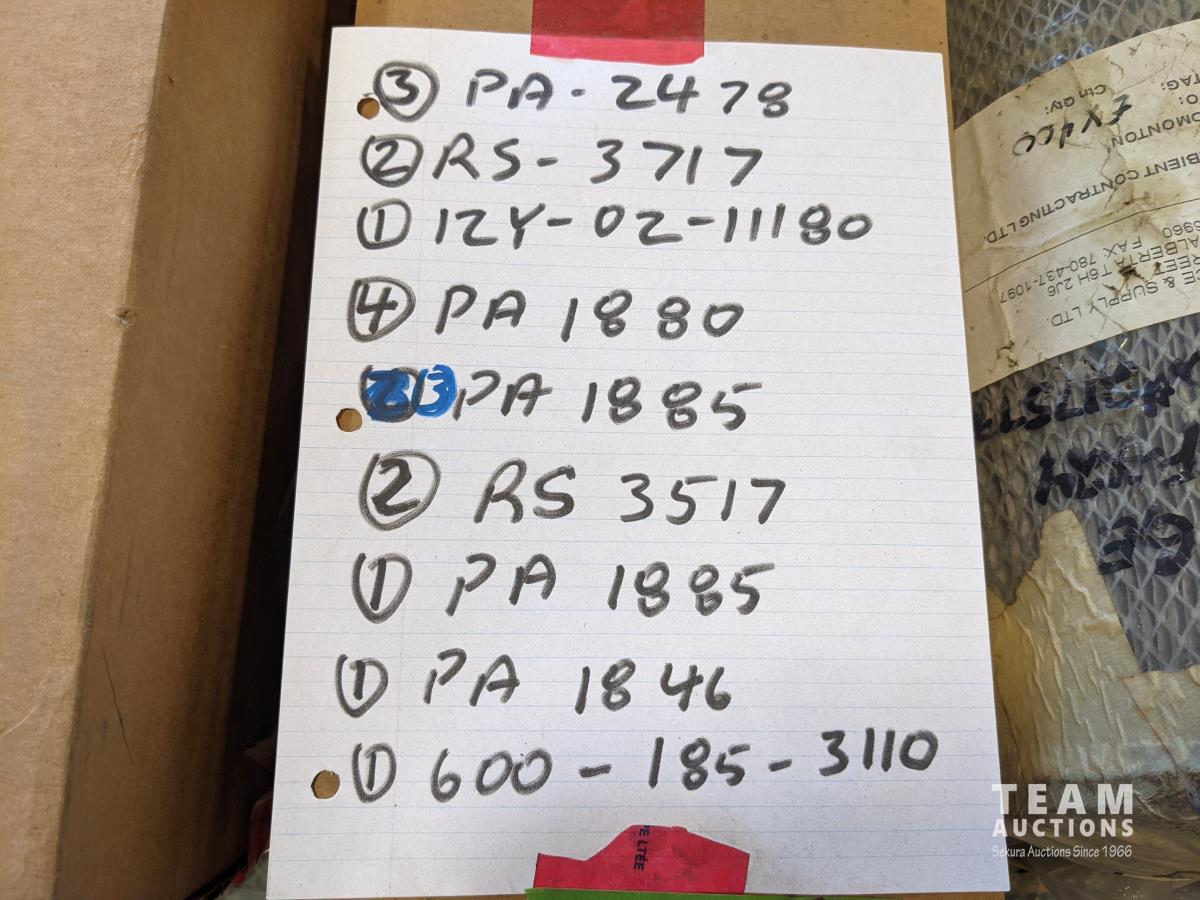 ③ PA-2478
② RS-3717
① 12Y-02-11180
④ PA 1880
13 PA 1885
② RS 3517
① PA 1885
① PA 1846
① 600-185-3110
PE LTÉE
TAG:
Ctn Qty:
EX400
DMONTON
BIENT CONTRACTING LTD.
5960 FAX: 780-437-1097
ALBERTA T6H 2J6
REET
CE & SUPPLY LTD.
6E
TEAM
AUCTIONS
Sekura Auctions Since 1966